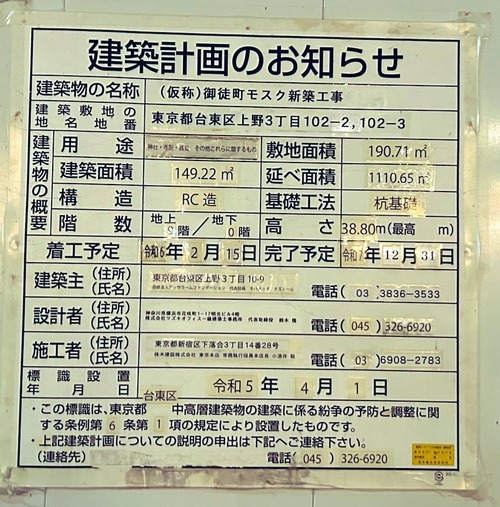 建築計画のお知らせ
建築物の名称 (仮称)御徒町モスク新築工事
建築敷地の地名地番 東京都台東区上野3丁目102-2,102-3
建築物の概要
用途 神社・寺院・教会 その他これらに類するもの 敷地面積 190.71㎡
建築面積 149.22㎡ 延べ面積 1110.65㎡
構造 RC造 基礎工法 杭基礎
階数 地上9階/地下0階 高さ 38.80m(最高 m)
着工予定 令和6年2月15日 完了予定 令和7年12月31日
建築主 (住所) 東京都台東区上野3丁目10-9
(氏名) 電話(03)3836-3533
設計者 (住所) 神奈川県横浜市花咲町1-17曙光ビル4階
(氏名) 株式会社スズキオフィス一級建築士事務所 代表取締役 鈴木 電話(045)326-6920
施工者 (住所) 東京都新宿区下落合3丁目14番28号
(氏名) 株木建設株式会社 東京本店 常務執行役員本店長 電話(03)6908-2783
標識設置年月日 令和5年4月1日
台東区
・この標識は、東京都 中高層建築物の建築に係る紛争の予防と調整に関
する条例第6条第1項の規定により設置したものです。
・上記建築計画についての説明の申出は下記へご連絡下さい。
(連絡先) 電話(045)326-6920